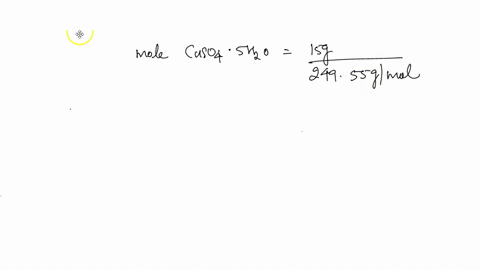 mole CuSO4·5H2O = 15g
249.55g/mol